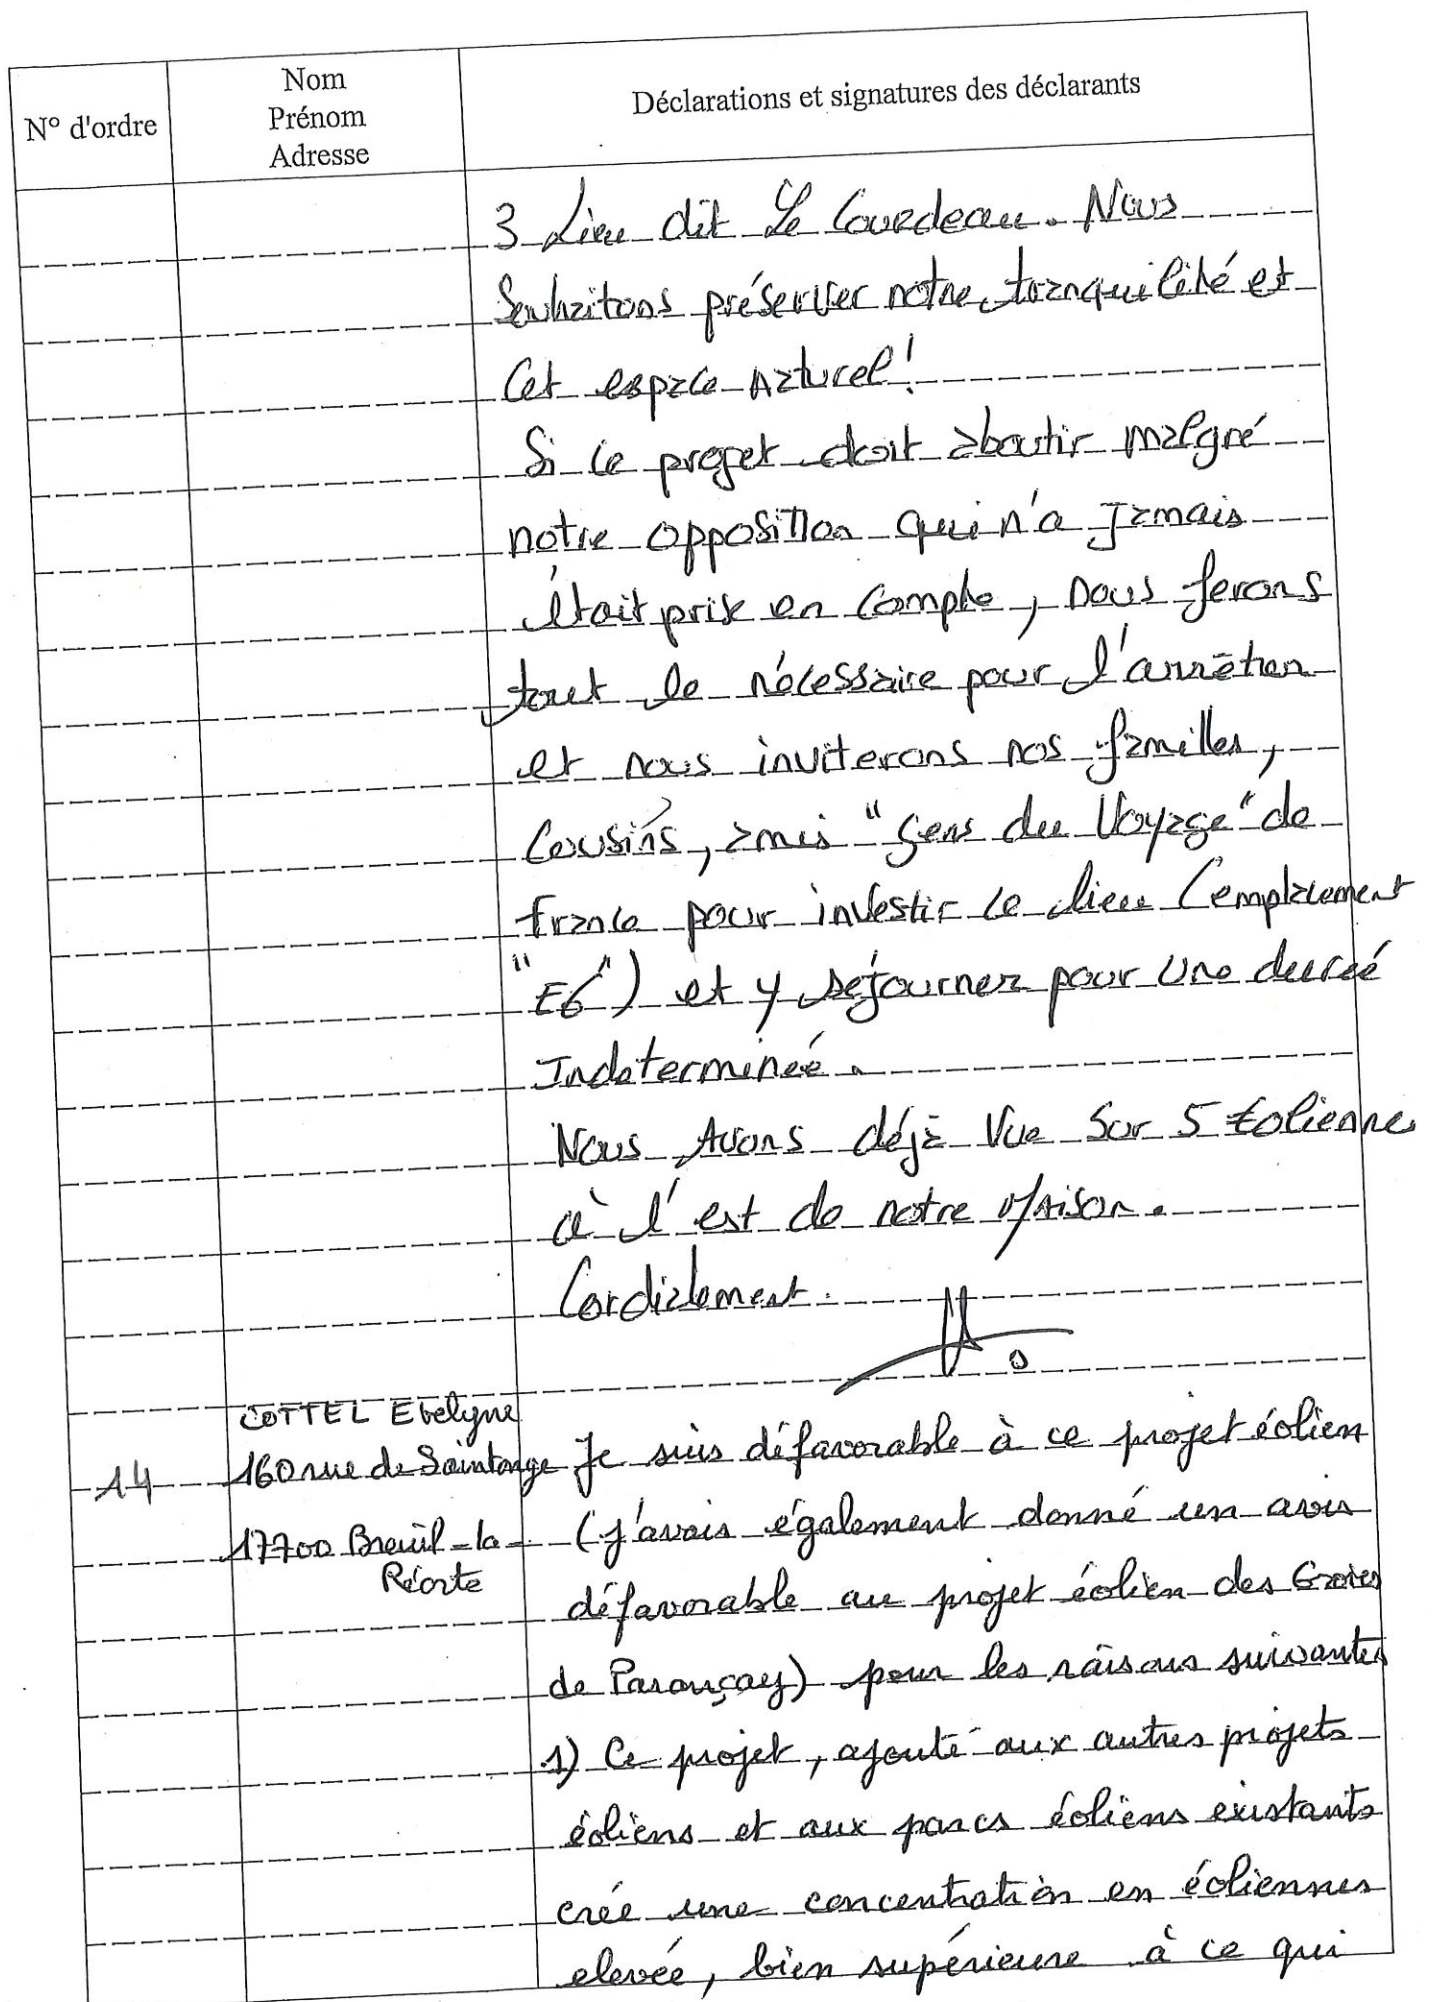 N° d'ordre
Nom
Prénom
Adresse
Déclarations et signatures des déclarants
3 Lieu dit Le Couedeau. Nous
Souhaitons préserver notre tranquilité et
Cet espace naturel!
Si ce projet doit aboutir malgré
notre opposition qui n'a Jamais
était prise en Compte, nous ferons
tout le nécessaire pour l'arrêter
et nous inviterons nos familles,
Cousins, amis "gens du Voyage" de
france pour investir ce lieu (emplacement
"E6") et y séjourner pour une dureé
Indetermineé.
Nous Avons déjà Vue Sur 5 Eolienne
à l'est de notre Maison.
Cordialement.
COTTEL Evelyne
14 160 rue de Saintonge Je suis défavorable à ce projet éolien
17700 Breuil-la (j'avais également donné un avis
Réorte
défavorable au projet éolien des Groies
de Parançay) pour les raisons suivantes
1) Ce projet, ajouté aux autres projets
éoliens et aux parcs éoliens existants
créé une concentration en éoliennes
elevée, bien supérieure à ce qui